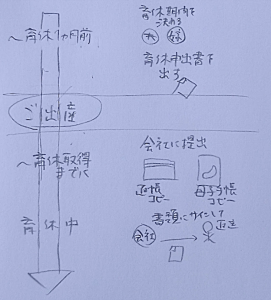 〜育休1カ月前
育休期間を
決める
夫 嫁
育休申出書を
出す
ご出産
〜育休取得
までに
会社に提出
通帳
コピー
母子手帳
コピー
育休中
書類にサインして
会社
返送